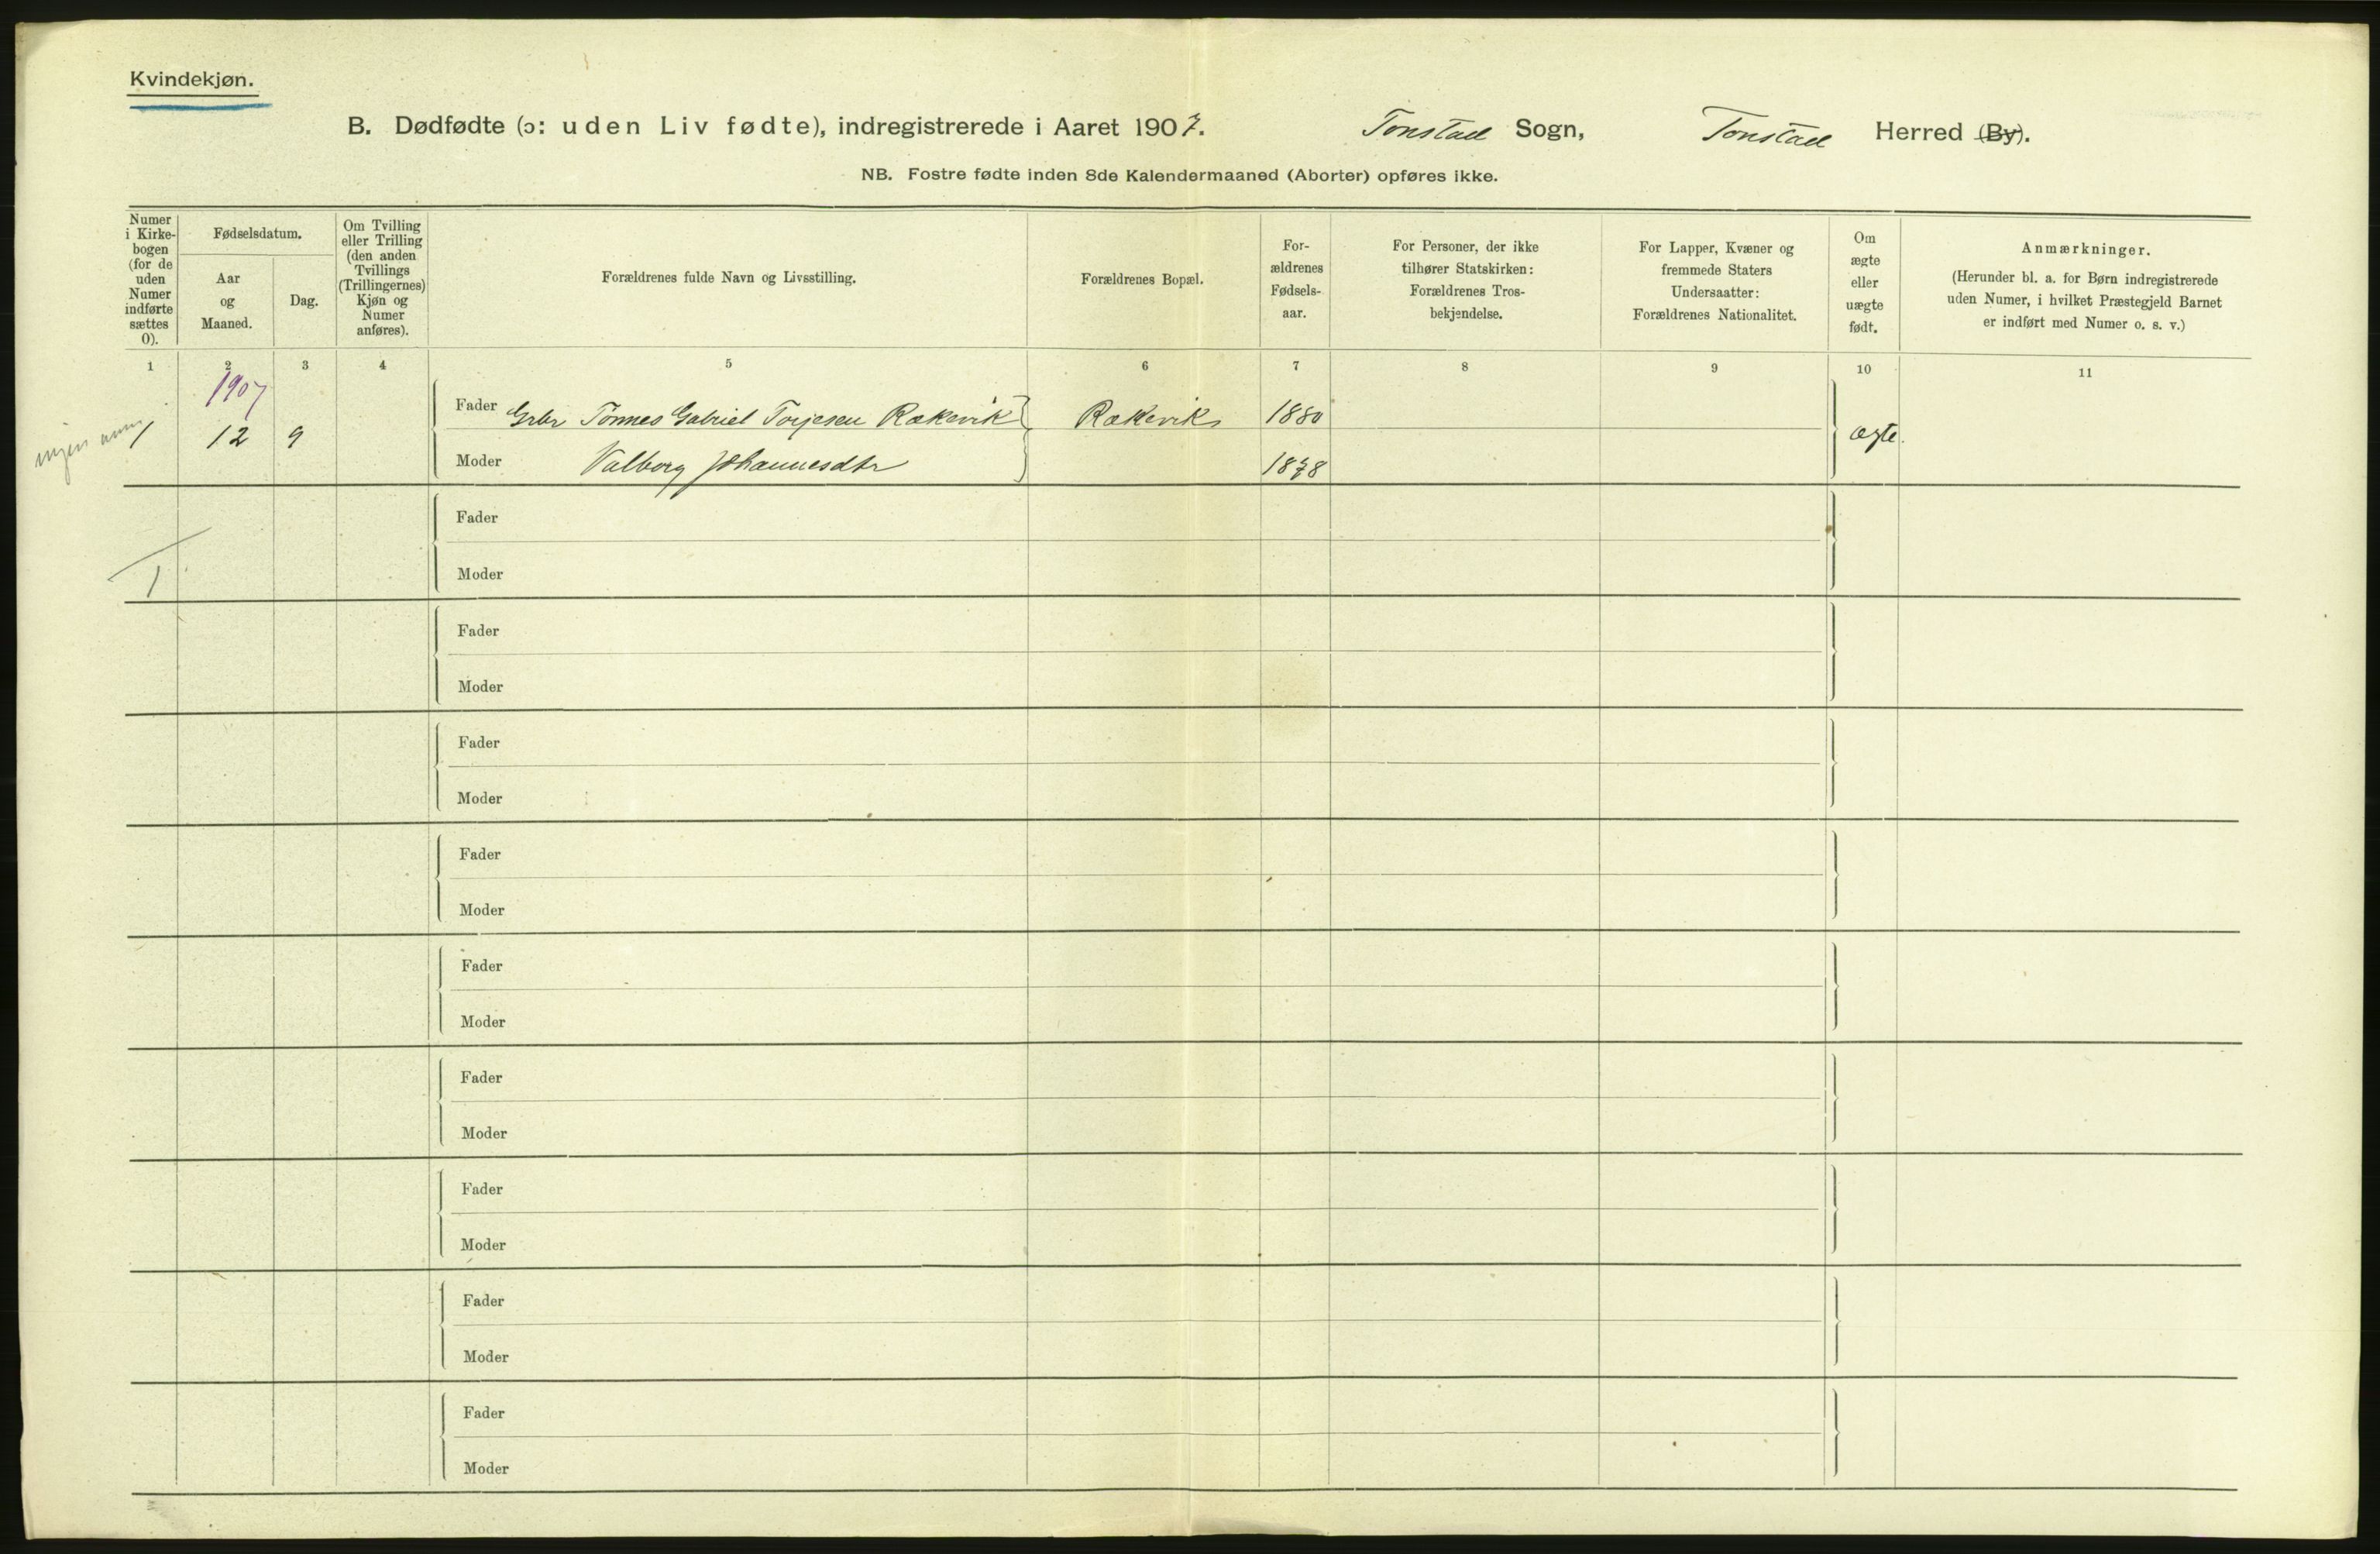 Kvindekjøn.
B. Dødfødte (ɔ: uden Liv fødte), indregistrerede i Aaret 1907. Tonstad Sogn, Tonstad Herred (By).
NB. Fostre fødte inden 8de Kalendermaaned (Aborter) opføres ikke.
Numer
i Kirke-
bogen
(for de
uden
Numer
indførte
sættes
0).
Fødselsdatum.
Aar
og
Maaned.
Dag.
Om Tvilling
eller Trilling
(den anden
Tvillings
(Trillingernes)
Kjøn og
Numer
anføres).
Forældrenes fulde Navn og Livsstilling.
Forældrenes Bopæl.
For-
ældrenes
Fødsels-
aar.
For Personer, der ikke
tilhører Statskirken:
Forældrenes Tros-
bekjendelse.
For Lapper, Kvæner og
fremmede Staters
Undersaatter:
Forældrenes Nationalitet.
Om
ægte
eller
uægte
født.
Anmærkninger.
(Herunder bl. a. for Børn indregistrerede
uden Numer, i hvilket Præstegjeld Barnet
er indført med Numer o. s. v.)
1 2 3 4 5 6 7 8 9 10 11
1907
Fader Grbr Tønnes Gabriel Torjesen Rækevik Rækevik 1880
1 12 9 ægte.
Moder Valborg Johannesdtr 1878
Fader
Moder
1
Fader
Moder
Fader
Moder
Fader
Moder
Fader
Moder
Fader
Moder
Fader
Moder
Fader
Moder
Fader
Moder